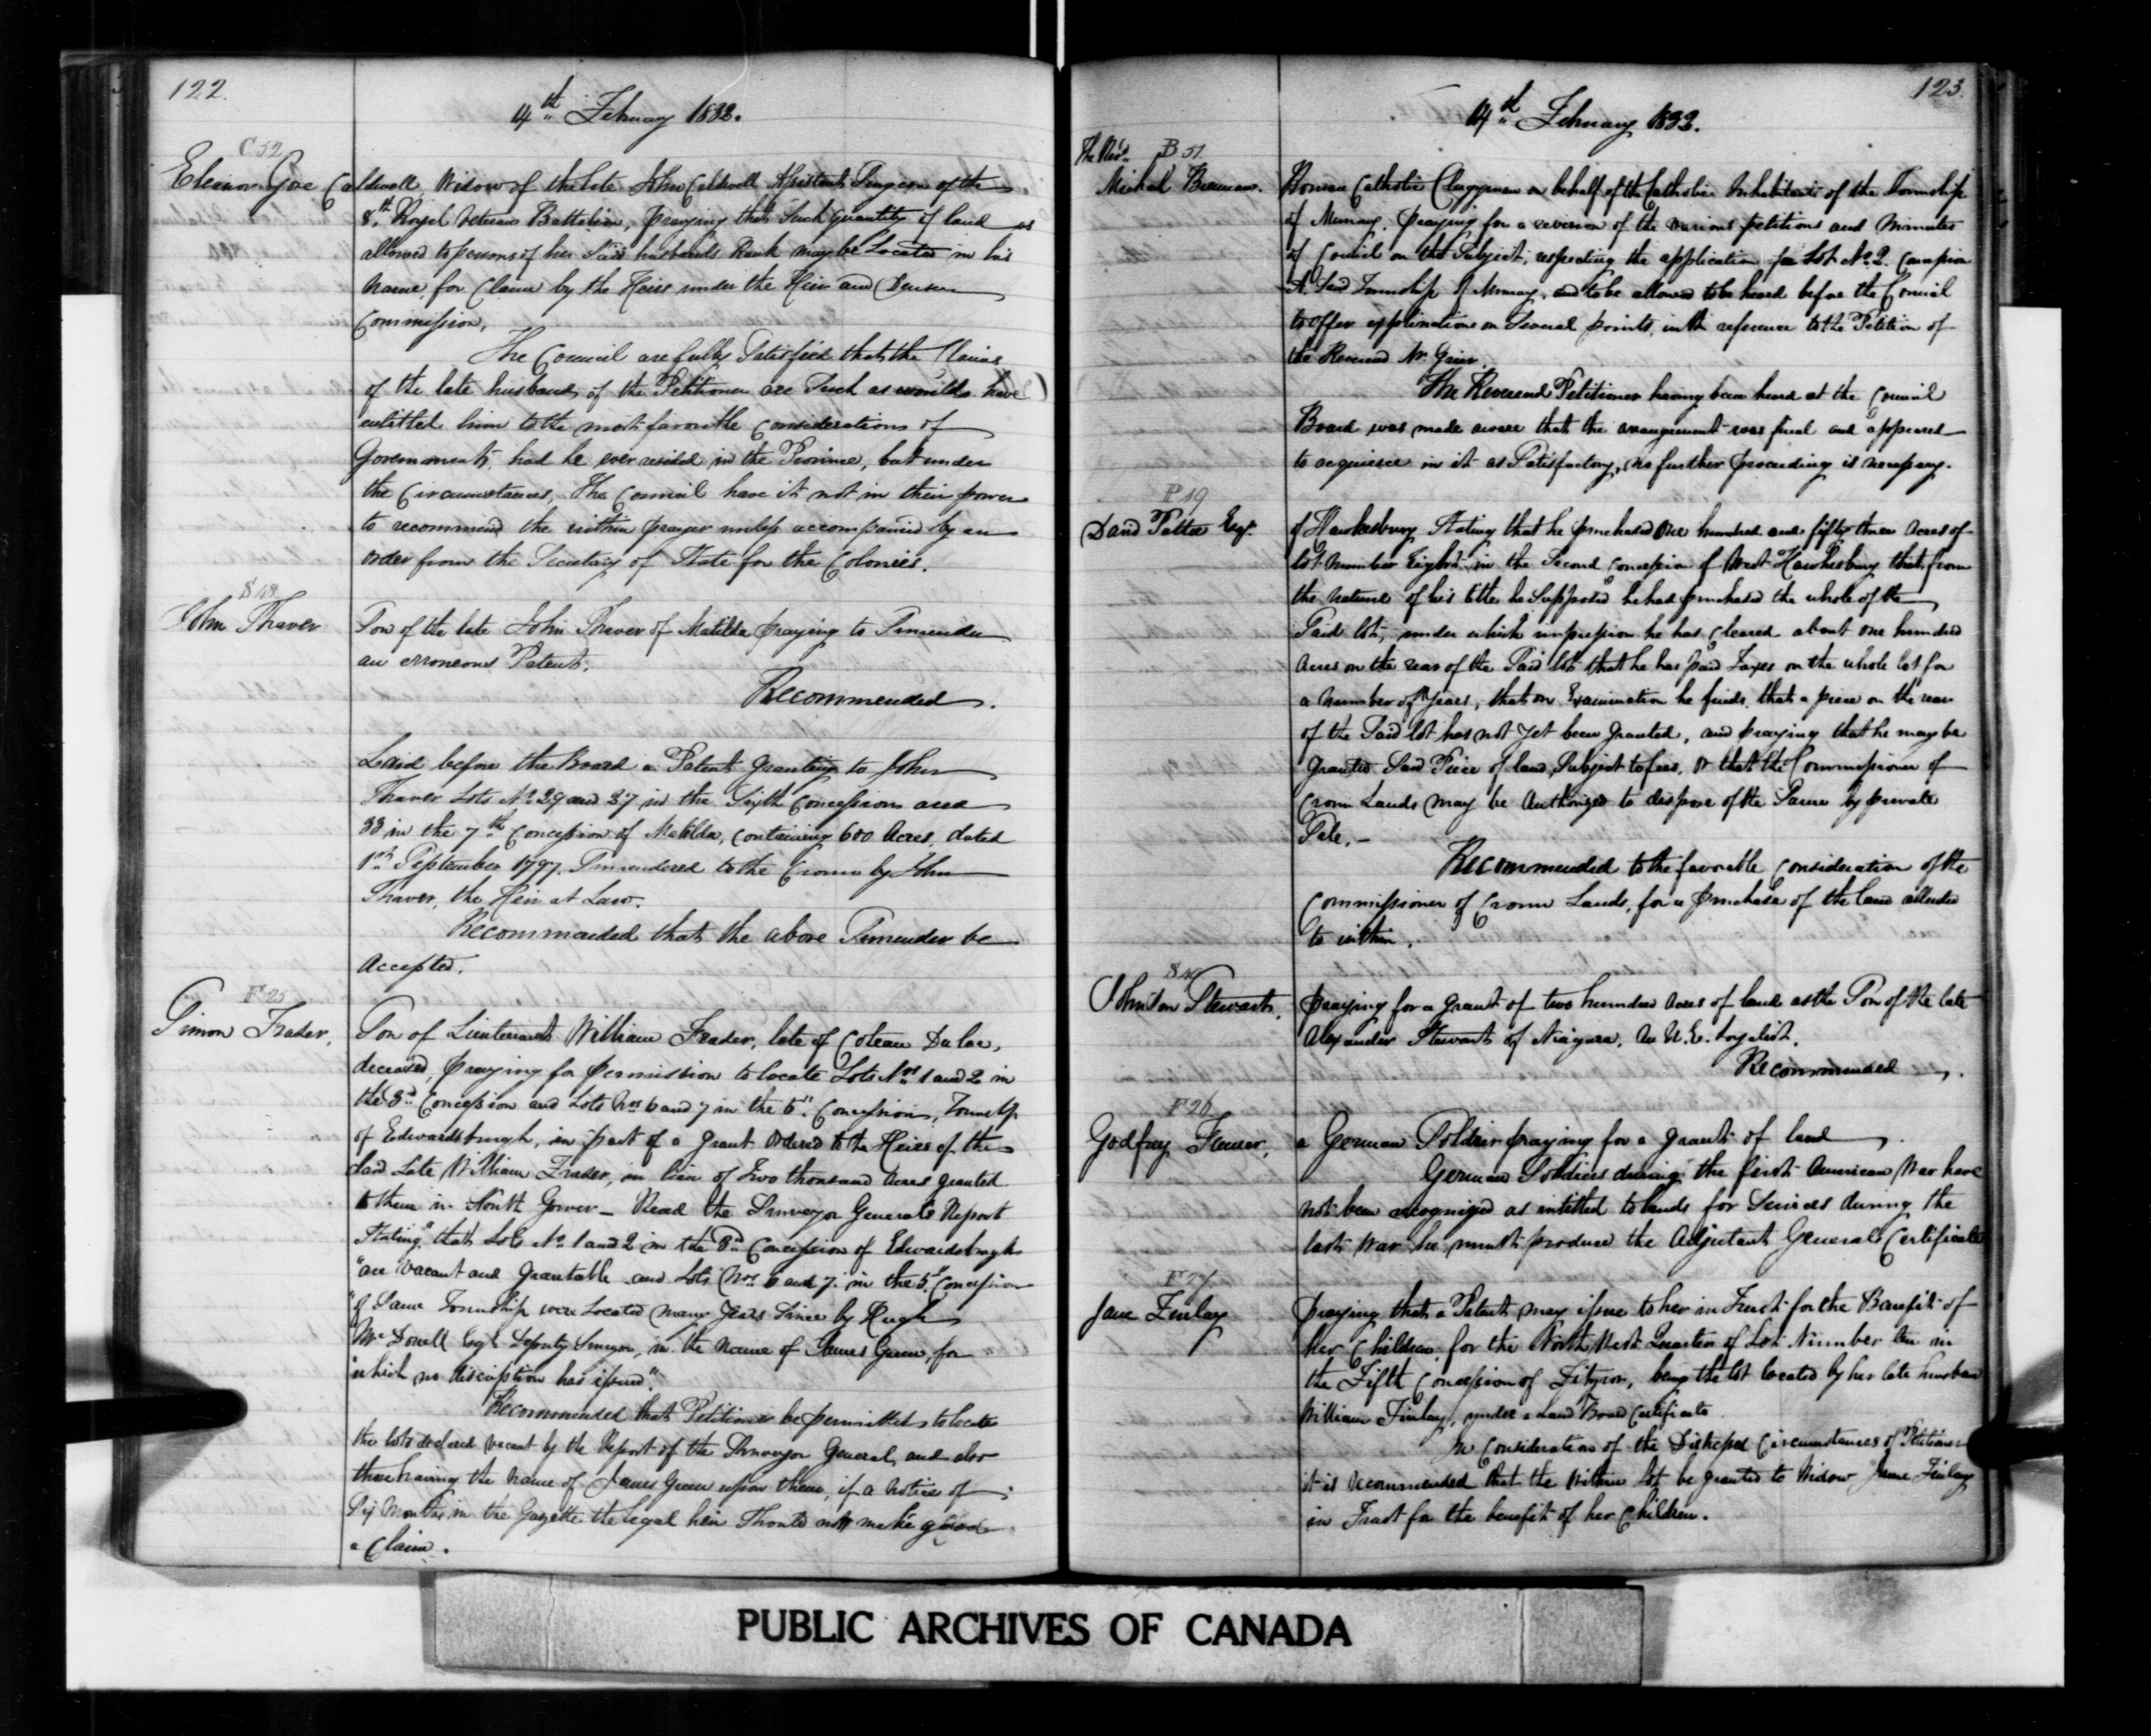 122.
4th February 1832.
C 52
Eleanor Gore Caldwell, Widow of the late John Caldwell Assistant Surgeon of the
8th Royal Veteran Battalion, praying that Such quantity of land as
allowed to persons of her Said husbands Rank may be Located in his
Name, for Claim by the Heirs under the Heir and Devisee
Commission.
The Council are fully Satisfied that the Claims
of the late husband of the Petitioner are Such as would have
entitled him to the most favorable Considerations of
Government, had he ever resided in the Province, but under
the Circumstances, The Council have it not in their power
to recommend the within prayer unless accompanied by an
order from the Secretary of State for the Colonies.
S 48
John Shaver
Son of the late John Shaver of Matilda praying to Surrender
an erroneous Patent.
Recommended.
Laid before the Board a Patent granting to John
Shaver Lots No 29 and 37 in the Sixth Concession and
33 in the 7th Concession of Matilda, containing 600 Acres, dated
1st September 1797. Surrendered to the Crown by John
Shaver, the Heir at Law.
Recommended that the above Surrender be
Accepted.
F 25
Simon Fraser,
Son of Lieutenant William Fraser, late of Coteau Du lac,
deceased, praying for permission to locate Lots Nos 1 and 2 in
the 8th Concession and Lots Nos 6 and 7 in the Concession, Township
of Edwardsburgh, in part of a grant Ordered to the Heirs of the
said Late William Fraser, in lieu of Two thousand Acres granted
to them in North Gower - Read the Surveyor Generals Report
Stating "that Lots No 1 and 2 in the 8th Concession of Edwardsburgh
"are Vacant and grantable and Lots Nos 6 and 7 in the Concession
"of Same Township were Located many Years Since by Hugh
McDonell Esqr Deputy Surveyor, in the Name of James Green, for
"which no description has issued."
Recommended that Petitioner be permitted to locate
the lots declared vacant by the Report of the Surveyor General, and also
those having the name of James Green upon them, if a Notice of
Six Months in the Gazette the legal heir Should not make good
a Claim.
123.
4th February 1832.
The Revd B 51
Michael Brennan.
Roman Catholic Clergyman on behalf of the Catholic Inhabitants of the Township
of Murray, praying for a revision of the various petitions and Minutes
of Council on the Subject, respecting the application for Lot No 2. Concession
A. Said Township of Murray, and to be allowed to be heard before the Council
to offer explanations on Several points, with reference to the Petition of
the Reverend Mr Grier.
The Reverend Petitioner having been heard at the Council
Board was made aware that the arrangement was final and appeared
to acquiesce in it as Satisfactory, no further proceeding is necessary.
P 19
David Pattee Esqr.
of Hawkesbury, Stating that he purchased One hundred and fifty three Acres of
lot Number Eight in the Second Concession of West Hawkesbury that from
the nature of his title he Supposed he had purchased the whole of the
Said lot, under which impression he has Cleared about one hundred
Acres on the rear of the Said lot that he has paid Taxes on the whole lot for
a Number of Years, that on Examination he finds, that a piece on the rear
of the Said lot has not Yet been granted, and praying that he may be
granted Said Piece of land Subject to fees, or that the Commissioner of
Crown Lands may be Authorized to dispose of the Same by private
Sale. -
Recommended to the favorable Consideration of the
Commissioner of Crown Lands, for a purchase of the land alluded
to within.
S 49
Johnston Stewart,
praying for a grant of two hundred Acres of land as the Son of the late
Alexander Stewart of Niagara, An U. E. Loyalist.
Recommended.
F 26
Godfrey
a German Soldier praying for a grant of land.
German Soldiers during the first American War have
not been recognized as entitled to lands for Services during the
last War he must produce the Adjutant Generals Certificate
F 27
Jane Finlay
praying that a Patent may issue to her in Trust for the Benefit of
her Children, for the North West Quarter of Lot Number ten in
the Fifth Concession of Fitzroy, being the lot located by her late husband
William Finlay, under a Land Board Certificate.
In Consideration of the Distressed Circumstances of Petitioner
it is recommended that the Within lot be granted to Widow Jane Finlay
in Trust for the benefit of her Children.
PUBLIC ARCHIVES OF CANADA